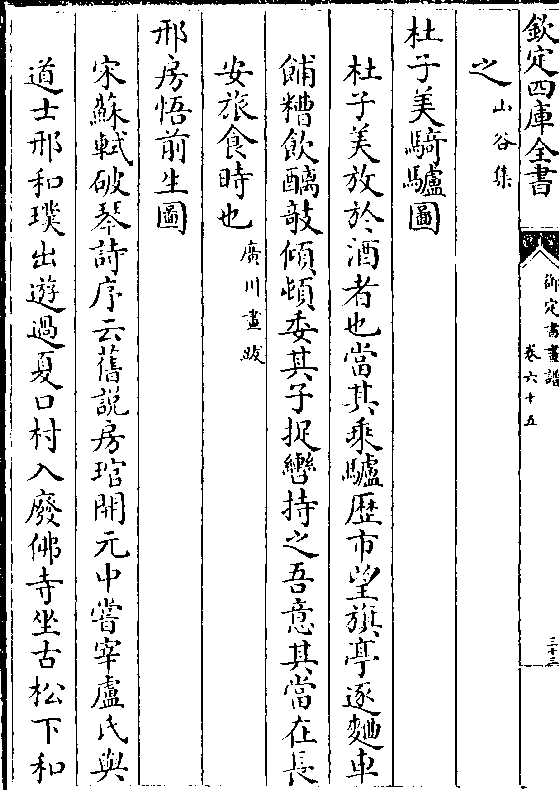 欽定四庫全書
御定書畫譜
卷六十五
三十三
之山谷集
杜子美騎驢圖
杜子美放於酒者也當其乘驢歴市望旗亭逐麯車
餔糟飲醨敧傾頓委其子捉轡持之吾意其當在長
安旅食時也廣川畫跋
邢房悟前生圖
宋蘇軾破琴詩序云舊説房琯開元中嘗宰盧氏與
道士邢和璞出遊過夏口村入廢佛寺坐古松下和